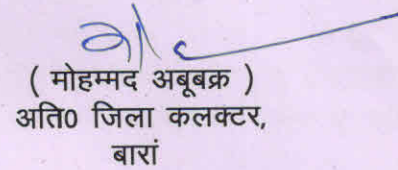 ( मोहम्मद अबूबक्र )
अति0 जिला कलक्टर,
बारां